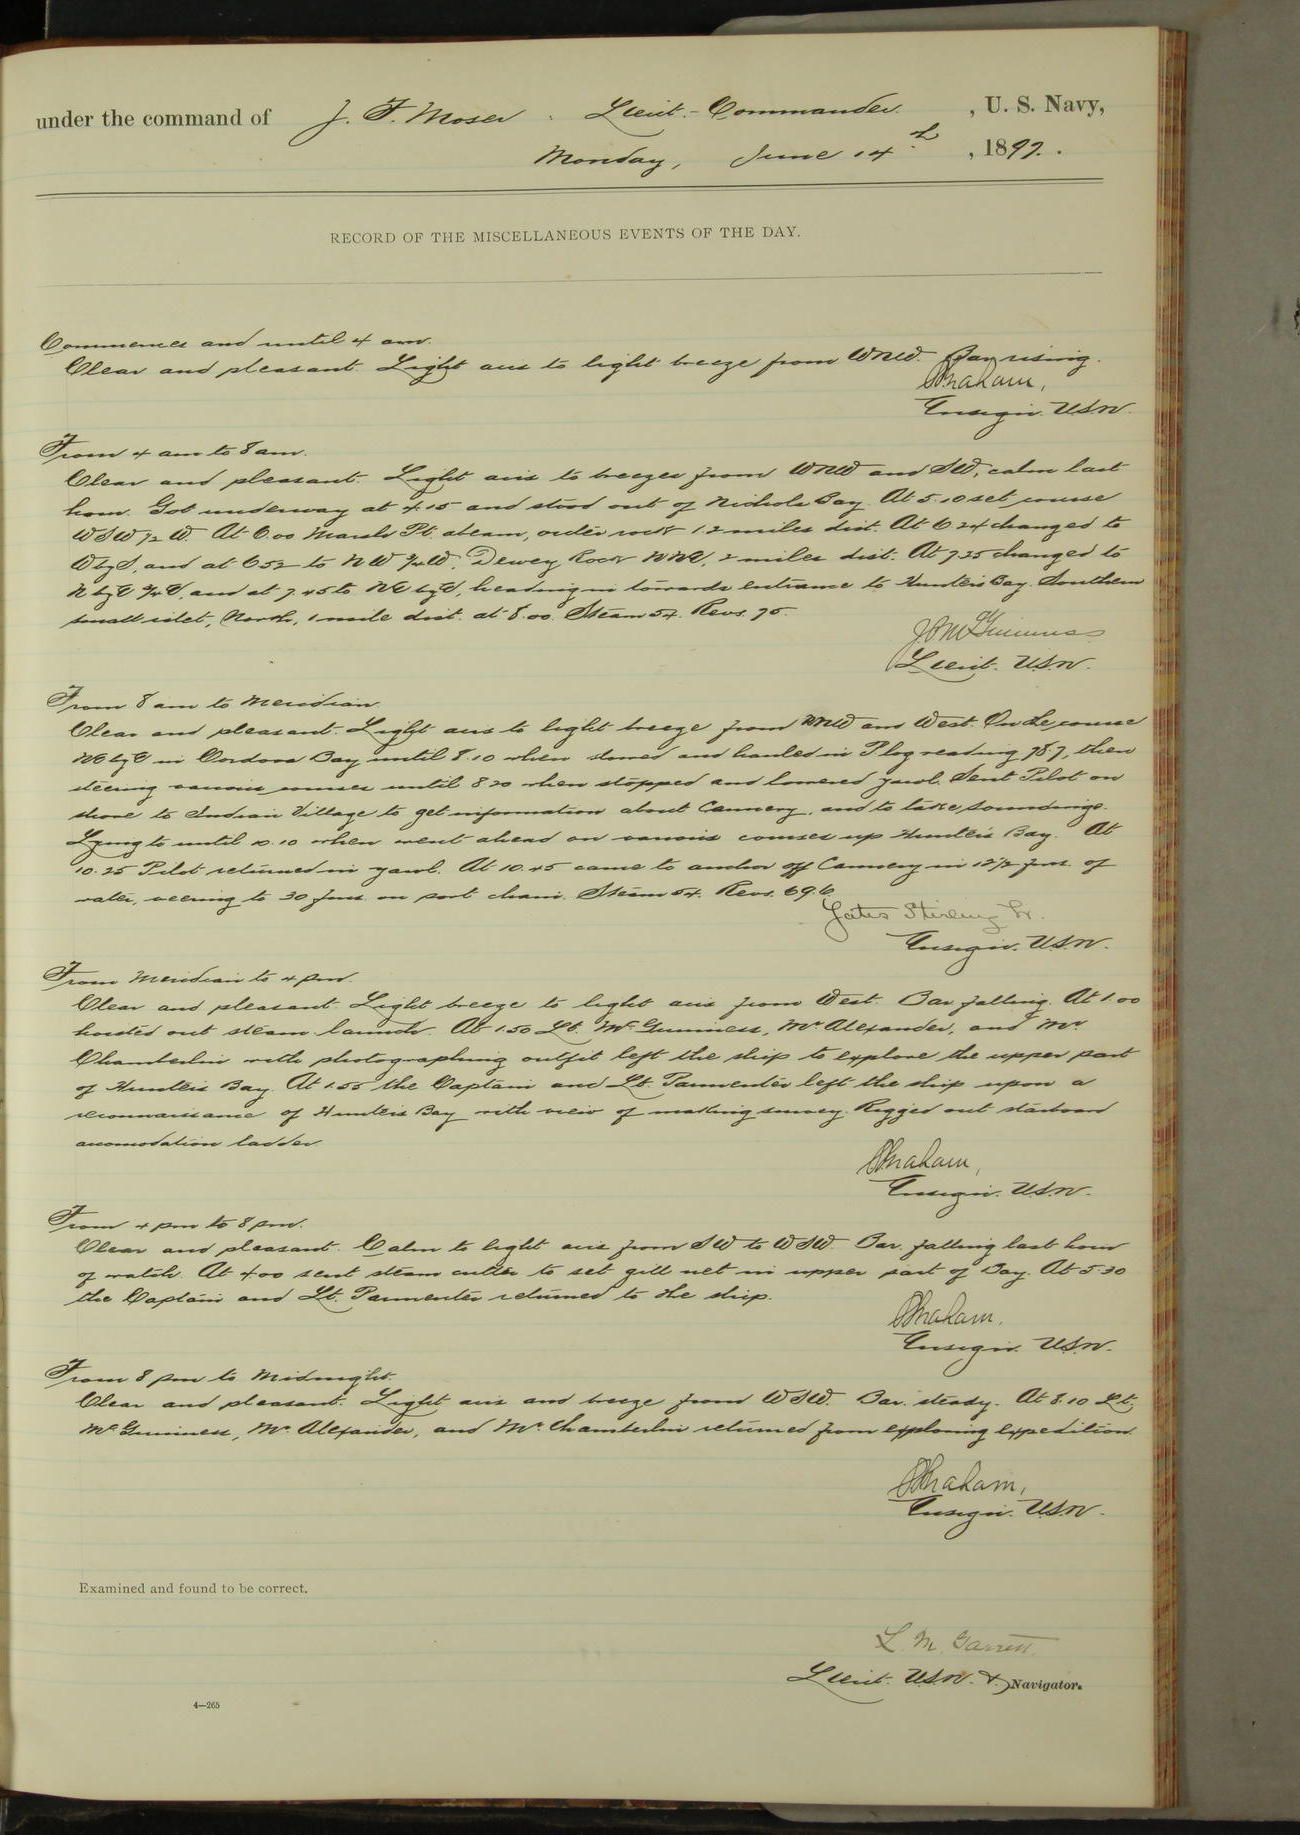 under the command of J. F. Moser, Lieut.-Commander, U. S. Navy,
Monday, June 14th, 1897.
RECORD OF THE MISCELLANEOUS EVENTS OF THE DAY.
Commences and until 4 am.
Clear and pleasant. Light airs to light breeze from WNW. Bar rising.
Graham,
Ensign. U.S.N.
From 4 am to 8 am.
Clear and pleasant. Light airs to breezes from WNW and SW, calm last
hour. Got underway at 4.15 and stood out of Nichols Bay. At 5.10 set course
WSW 1/2 W. At 6.00 Marsh Pt. abeam, outer rock 1.2 miles dist. At 6.24 changed to
WbyS, and at 6.52 to NW 3/4 W. Dewey Rock NNE, 2 miles dist. At 7.25 changed to
NbyE 3/4 E, and at 7.45 to NEbyE, heading in towards entrance to Hunter's Bay. Southern
small islet, North, 1 mile dist. at 8.00. Steam 54. Revs. 75.
J.P. McGuinness
Lieut. U.S.N.
From 8 am to Meridian.
Clear and pleasant. Light airs to light breeze from WNW and West. On the course
NEbyE in Cordova Bay until 8.10 when slowed and hauled in P log reading 78.7, then
steering various courses until 8.20 when stopped and lowered yawl. Sent Pilot on
shore to Indian Village to get information about Cannery, and to take soundings.
Lying to until 10.10 when went ahead on various courses up Hunter's Bay. At
10.25 Pilot returned in yawl. At 10.45 came to anchor off Cannery in 12 1/2 fms. of
water, veering to 30 fms. on port chain. Steam 54. Revs. 69.6.
Yates Stirling Jr.
Ensign. U.S.N.
From Meridian to 4 pm.
Clear and pleasant. Light breeze to light airs from West. Bar. falling. At 1.00
hoisted out steam launch. At 1.50 Lt. McGuinness, Mr Alexander, and Mr
Chamberlin with photographing outfit left the ship to explore the upper part
of Hunter's Bay. At 1.55 the Captain and Lt. Parmenter left the ship upon a
reconnaissance of Hunter's Bay with view of making survey. Rigged out starboard
accomodation ladder.
Graham,
Ensign. U.S.N.
From 4 pm to 8 pm.
Clear and pleasant. Calm to light airs from SW to WSW. Bar. falling last hour
of watch. At 4.00 sent steam cutter to set gill net in upper part of Bay. At 5.30
the Captain and Lt. Parmenter returned to the ship.
Graham.
Ensign. U.S.N.
From 8 pm to Midnight.
Clear and pleasant. Light airs and breeze from WSW. Bar. steady. At 8.10 Lt.
McGuinness, Mr. Alexander, and Mr. Chamberlin returned from exploring expedition.
Graham,
Ensign. U.S.N.
Examined and found to be correct.
L. M. Garrett,
Lieut. U.S.N. & Navigator.
4—265